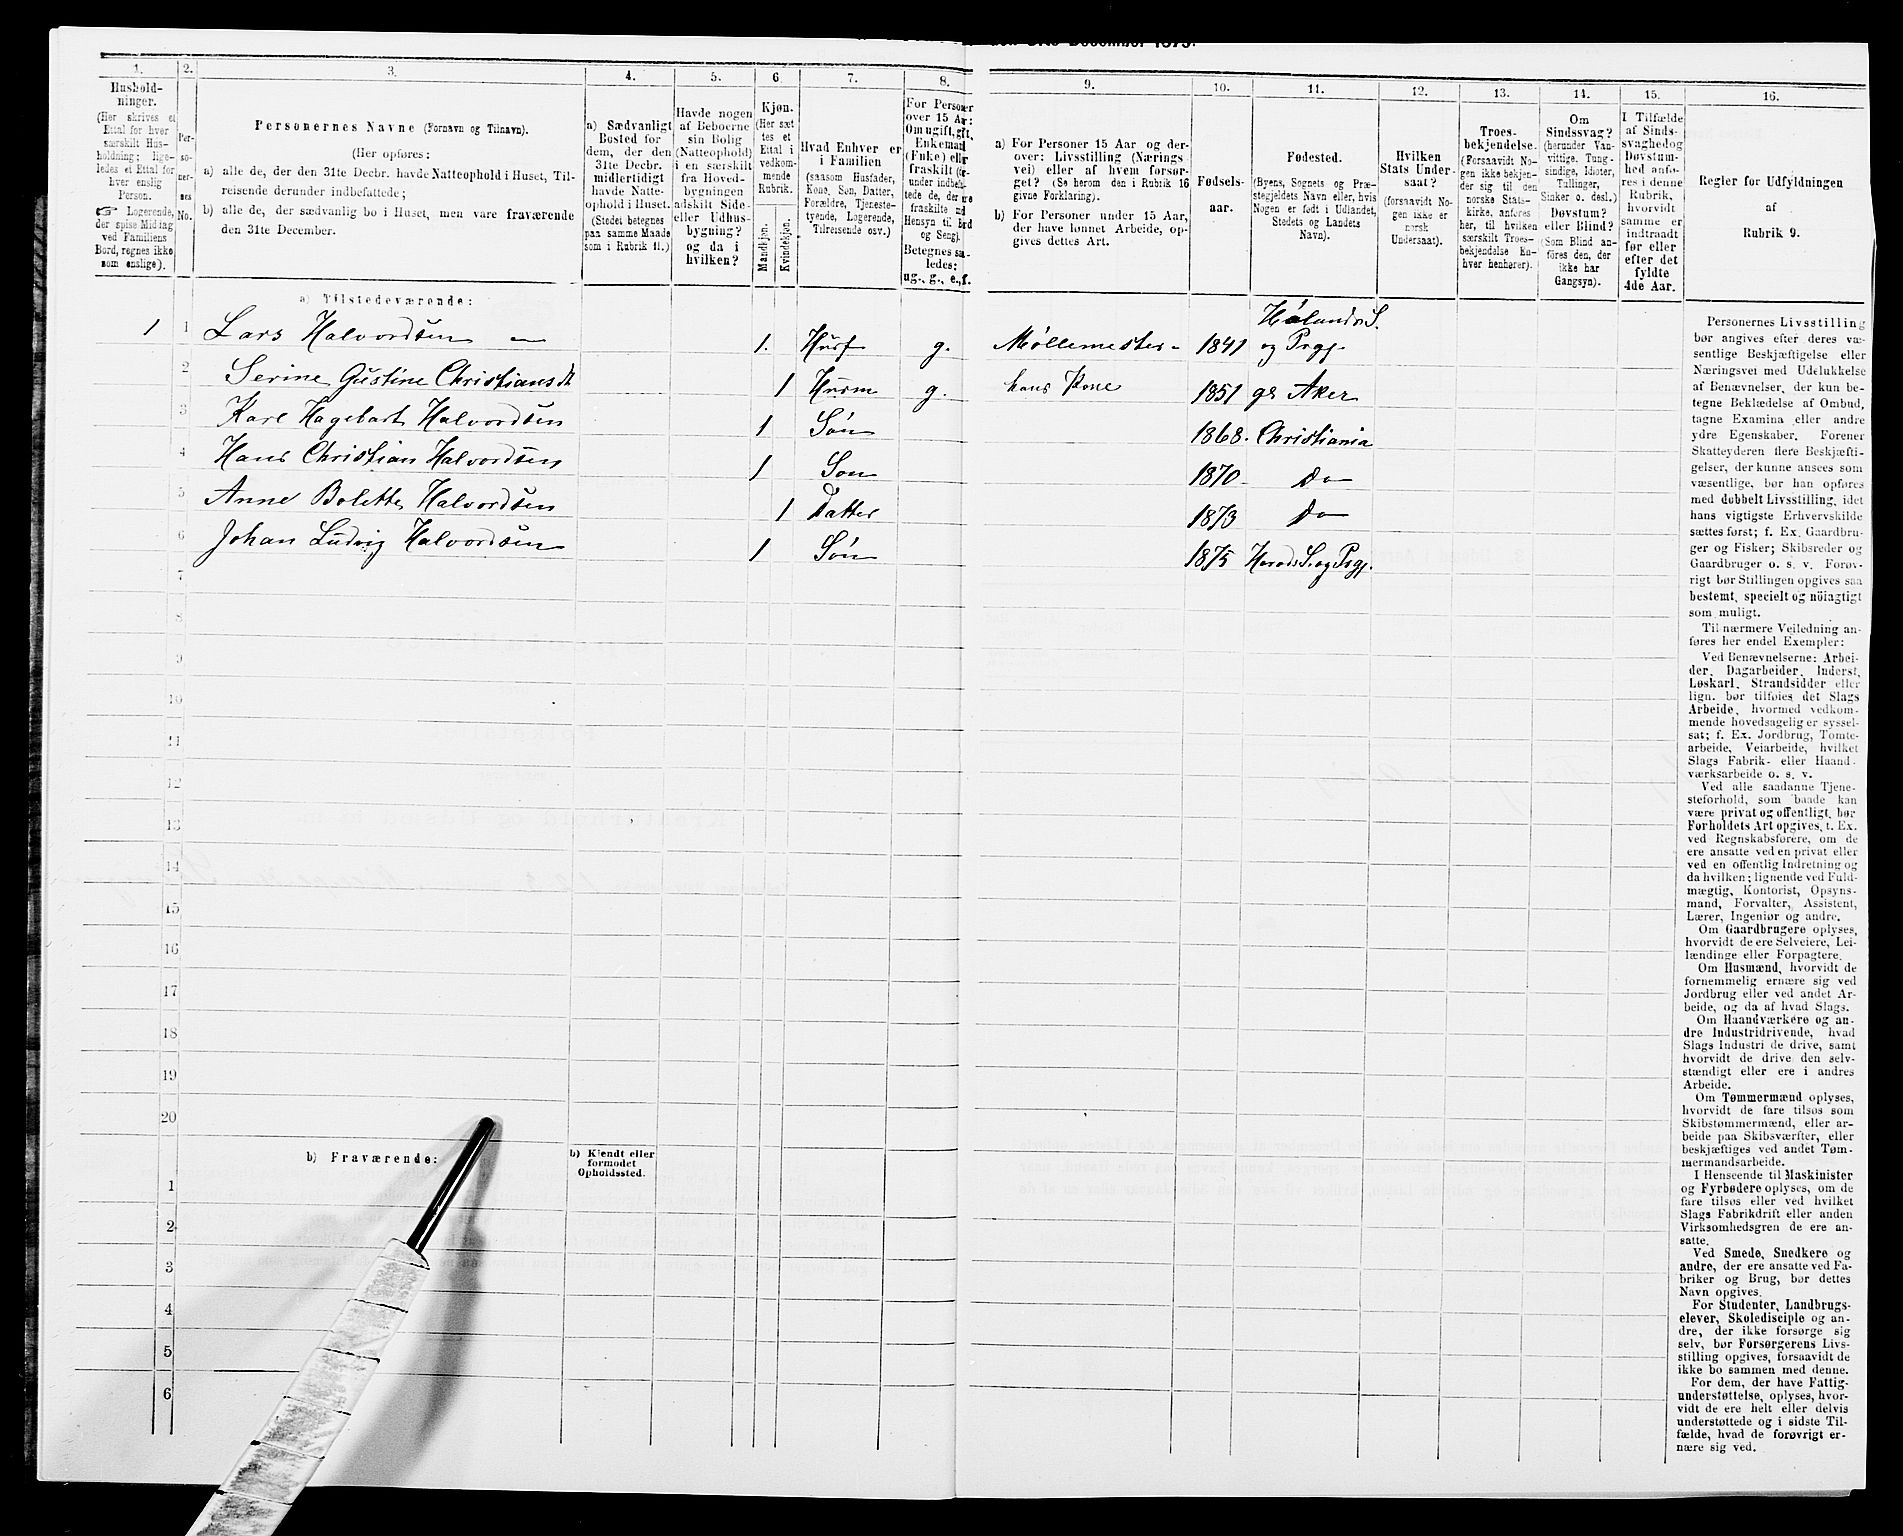 den 31te December 1875.
1.
Hushold-
ninger.
(Her skrives et
Ettal for hver
særskilt Hus-
holdning; lige-
ledes et Ettal for
hver enslig
Person.
☞ Logerende,
der spise Middag
ved Familiens
Bord, regnes ikke
som enslige).
2.
Per-
so-
ner-
nes
No.
3.
Personernes Navne (Fornavn og Tilnavn).
(Her opføres:
a) alle de, der den 31te Decbr. havde Natteophold i Huset, Til-
reisende derunder indbefattede;
b) alle de, der sædvanlig bo i Huset, men vare fraværende
den 31te December.
4.
a) Sædvanligt
Bosted for
dem, der den
31te Decbr.
midlertidigt
havde Natte-
ophold i Huset.
(Stedet betegnes
paa samme Maade
som i Rubrik 11.)
5.
Havde nogen
af Beboerne
sin Bolig
(Natteophold)
i en særskilt
fra Hoved-
bygningen
adskilt Side-
eller Udhus-
bygning?
og da i
hvilken?
6.
Kjøn.
(Her sæt-
tes et
Ettal i
vedkom-
mende
Rubrik.
Mandkjøn.
Kvindekjøn.
7.
Hvad Enhver er
i Familien
(saasom Husfader,
Kone, Søn, Datter,
Forældre, Tjeneste-
tyende, Logerende,
Tilreisende osv.)
8.
For Personer
over 15 Aar:
Om ugift, gift,
Enkemand
(Enke) eller
fraskilt
ug., g., e., f.
9.
a) For Personer 15 Aar og der-
over: Livsstilling (Nærings-
vei) eller af hvem forsør-
get? (Se herom den i Rubrik 16
givne Forklaring).
b) For Personer under 15 Aar,
der have lønnet Arbeide, op-
gives dettes Art.
10.
Fødsels-
aar.
11.
Fødested.
(Byens, Sognets og Præ-
stegjeldets Navn eller, hvis
Nogen er født i Udlandet,
Stedets og Landets
Navn).
12.
Hvilken
Stats Under-
saat?
(forsaavidt No-
gen ikke er
norsk
Undersaat).
13.
Troes-
bekjendelse.
(Forsaavidt No-
gen ikke bekjen-
der sig til den
norske Stats-
kirke, anføres
her, til hvilken
særskilt Troes-
bekjendelse En-
hver henhører).
14.
Om
Sindssvag?
(herunder Van-
vittige, Tung-
sindige, Idioter,
Tullinger,
Sinker o. desl.)
Døvstum?
eller Blind?
(Som Blind an-
føres den, der
ikke har
Gangsyn).
15.
I Tilfælde
af Sinds-
svaghed og
Døvstum-
hed anfø-
res i denne
Rubrik,
hvorvidt
samme er
indtraadt
før eller
efter det
fyldte
4de Aar.
16.
Regler for Udfyldningen
af
Rubrik 9.
a) Tilstedeværende:
Hølands S.
1 1 Lars Halvordsen 1. Husf g. Møllemester 1841 og Prgj.
2 Serine Gustine Christiansdt 1 Husm g. hans Kone 1851 Aker
3 Karl Hagebart Halvordsen 1 Søn 1868. Christiania
4 Hans Christian Halvordsen 1 Søn 1870 Do
5 Anne Bolette Halvordsen 1 Datter 1873 Do
6 Johan Ludvig Halvordsen 1 Søn 1875
7
8
9
10
11
12
13
14
15
16
17
18
19
20
b) Fraværende:
b) Kjendt eller
formodet
Opholdssted.
1
2
3
4
5
6
Personernes Livsstilling
bør angives efter deres væ-
sentlige Beskjæftigelse eller
Næringsvei med Udelukkelse
af Benævnelser, der kun be-
tegne Beklædelse af Ombud,
tagne Examina eller andre
ydre Egenskaber. Forener
Skatteyderen flere Beskjæfti-
gelser, der kunne ansees som
væsentlige, bør han opføres
med dobbelt Livsstilling, idet
hans vigtigste Erhvervskilde
sættes først; f. Ex. Gaardbru-
ger og Fisker; Skibsreder og
Gaardbruger o. s. v. Forøv-
rigt bør Stillingen opgives saa
bestemt, specielt og nöiagtigt
som muligt.
Til nærmere Veiledning an-
føres her endel Exempler:
Ved Benævnelserne: Arbei-
der, Dagarbeider, Inderst,
Løskarl, Strandsidder eller
lign. bør tilføies det Slags
Arbeide, hvormed vedkom-
mende hovedsagelig er syssel-
sat; f. Ex. Jordbrug, Tomte-
arbeide, Veiarbeide, hvilket
Slags Fabrik- eller Haand-
værksarbeide o. s. v.
Ved alle saadanne Tjene-
steforhold, som baade kan
være privat og offentligt, bør
Forholdets Art opgives, t. Ex.
ved Regnskabsførere, om de
ere ansatte ved en privat eller
ved en offentlig Indretning og
da hvilken; lignende ved Fuld-
mægtig, Kontorist, Opsyns-
mand, Forvalter, Assistent,
Lærer, Ingeniør og andre.
Om Gaardbrugere oplyses,
hvorvidt de ere Selveiere, Lei-
lændinge eller Forpagtere.
Om Husmænd, hvorvidt de
fornemmelig ernære sig ved
Jordbrug eller ved andet Ar-
beide, og da af hvad Slags.
Om Haandværkere og an-
dre Industridrivende, hvad
Slags Industri de drive, samt
hvorvidt de drive den selv-
stændigt eller ere i andres
Arbeide.
Om Tømmermænd oplyses,
hvorvidt de fare tilsøs som
Skibstømmermænd, eller ar-
beide paa Skibsværfter, eller
beskjæftiges ved andet Tøm-
mermandsarbeide.
I Henseende til Maskinister
og Fyrbødere oplyses, om de
fare tilsøs eller ved hvilket
Slags Fabrikdrift eller anden
Virksomhedsgren de ere an-
satte.
Ved Smede, Snedkere og
andre, der ere ansatte ved Fa-
briker og Brug, bør dettes
Navn opgives.
For Studenter, Landbrugs-
elever, Skoledisciple og an-
dre, der ikke forsørge sig
selv, bør Forsørgerens Livs-
stilling opgives, forsaavidt de
ikke bo sammen med denne.
For dem, der have Fattig-
understøttelse, oplyses, hvor-
vidt de ere helt eller delvis
understøttede og i sidste Til-
fælde, hvad de forøvrigt er-
nære sig ved.